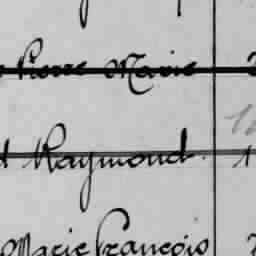 Pierre Marie
Raymond.
Marie François